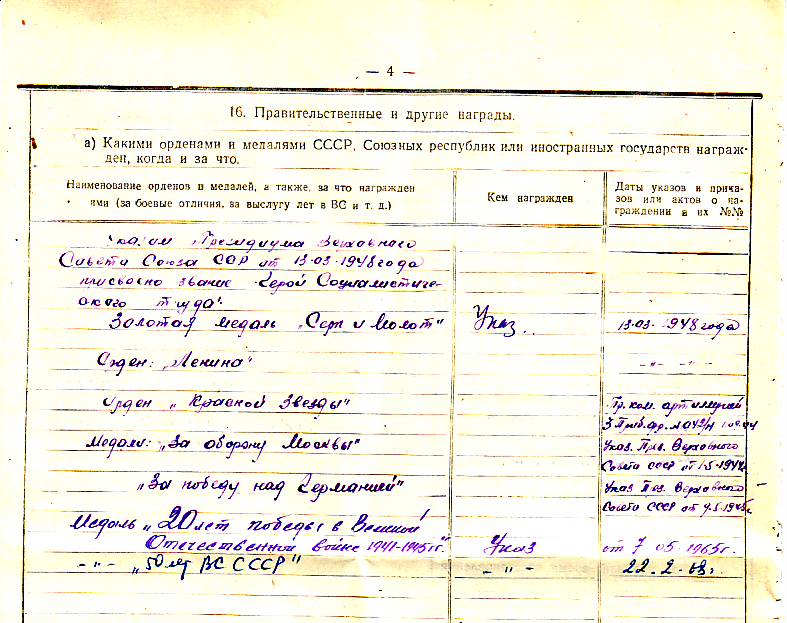 — 4 —
16. Правительственные и другие награды.
а) Какими орденами и медалями СССР, Союзных республик или иностранных государств награж-
ден, когда и за что.
Наименование орденов и медалей, а также, за что награжден
ими (за боевые отличия, за выслугу лет в ВС и т. д.)
Кем награжден
Даты указов и прика-
зов или актов о на-
граждении и их №№
Указом Президиума Верховного
Совета Союза ССР от 13-03-1948 года
присвоено звание "Герой Социалистиче-
ского труда".
Золотая медаль „Серп и Молот" Указ 13.03.1948 года
Орден: „Ленина" -„- -„-
Орден „Красной Звезды" Пр. ком. артиллерией
3 Приб. фр.
Медали: „За оборону Москвы" Указ. През. Верховного
Совета СССР от 1.5.1944г.
„За победу над Германией" Указ През. Верховного
Совета СССР от 9.5.1945г.
Медаль „20 лет победы в Великой
Отечественной войне 1941-1945 гг." Указ от 7.05.1965г.
-„- „50 лет ВС СССР" -„- 22.2.68г.